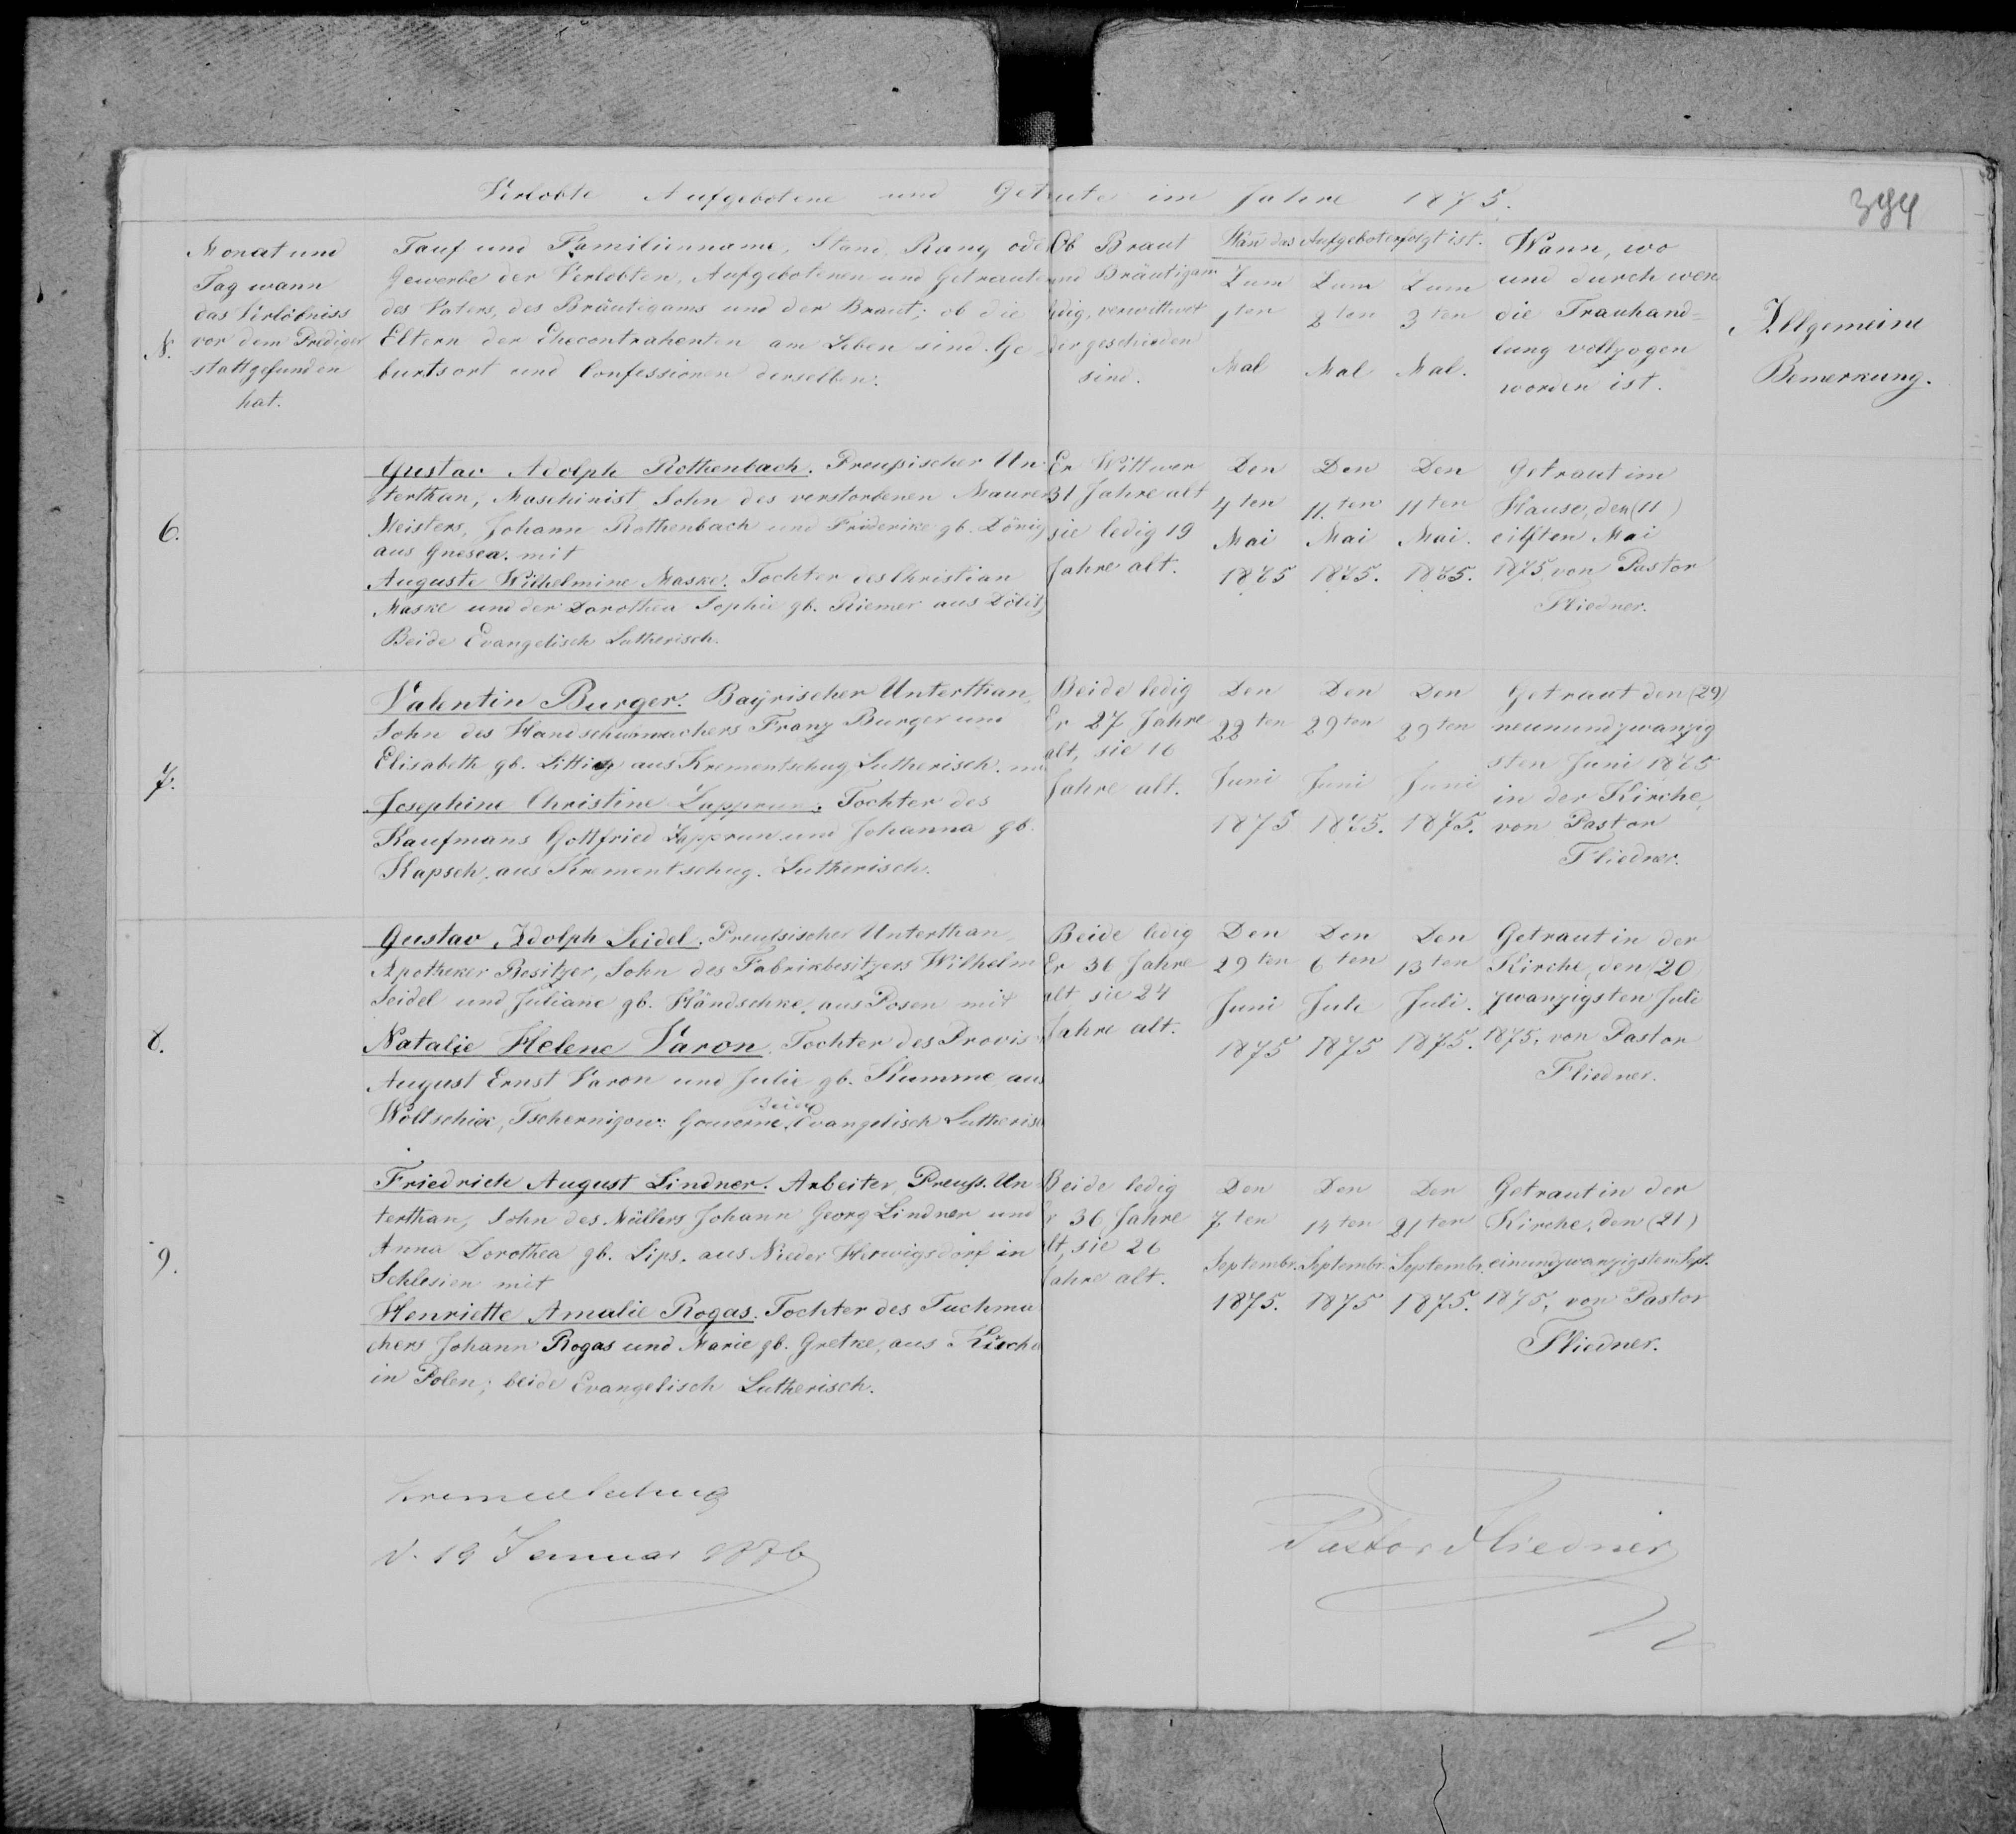 Verlobte Aufgebotene und Getraute im Jahre 1875.
384
N.
Monat und
Tag wann
das Verlöbniss
vor dem Prediger
stattgefunden
hat.
Tauf und Familienname, Stand, Rang ode
Gewerbe der Verlobten, Aufgebotenen und Getraute
des Vaters, des Bräutigams und der Braut; ob die
Eltern der Ehecontrahenten am Leben sind. Ge-
burtsort und Confessionen derselben.
Ob Braut
und Bräutigam
ledig, verwittwet
oder geschieden
sind.
Wan das Aufgebot erfolgt ist.
Zum
1ten
Mal
Zum
2ten
Mal
Zum
3ten
Mal.
Wann, wo
und durch wen
die Trauhand=
lung vollzogen
worden ist.
Allgemeine
Bemerkung.
6.
Gustav Adolph Rothenbach. Preußischer Un-
terthan, Maschinist Sohn des verstorbenen Maurer
Meisters, Johann Rothenbach und Friderike gb. Dönig
aus Gnesea. mit
Auguste Wilhelmine Maske. Tochter des Christian
Maske und der Dorothea Sophie gb. Riemer aus Dölitz
Beide Evangelisch Lutherisch.
Er Wittwer
31 Jahre alt
sie ledig 19
Jahre alt.
Den
4ten
Mai
1875
Den
11.ten
Mai
1875.
Den
11ten
Mai.
1875.
Getraut im
Hause, den (11)
eilften Mai
1875, von Pastor
Fliedner.
7.
Valentin Burger. Bayrischer Unterthan,
Sohn des Handschuhmachers Franz Burger und
Elisabeth gb. Littig aus Krementschug Lutherisch.
Josephine Christine Lapprun. Tochter des
Kaufmans Gottfried Lapprun und Johanna gb.
Kapsch, aus Krementschug. Lutherisch.
Beide ledig
Er 27 Jahre
alt, sie 16
Jahre alt.
Den
22ten
Juni
1875
Den
29ten
Juni
1875.
Den
29ten
Juni
1875.
Getraut den (29)
neunundzwanzig
sten Juni 1875
in der Kirche,
von Pastor
Fliedner.
8.
Gustav Adolph Seidel. Preussischer Unterthan,
Apotheker Besitzer, Sohn des Fabrikbesitzers Wilhelm
Seidel und Juliane gb. Händschke, aus Posen mit
Natalie Helene Varon. Tochter des Provis
August Ernst Varon und Julie gb. Klumme aus
Woltschick, Tschernigow: Gouverne. Beide Evangelisch Lutherisch
Beide ledig
Er 36 Jahre
alt sie 24
Jahre alt.
Den
29ten
Juni
1875
Den
6ten
Juli
1875
Den
13ten
Juli.
1875.
Getraut in der
Kirche, den (20
zwanzigsten Juli
1875, von Pastor
Fliedner.
9.
Friedrich August Lindner. Arbeiter, Preuß. Un-
terthan, Sohn des Müllers Johann Georg Lindner und
Anna Dorothea gb. Lips. aus Nieder Herwigsdorf in
Schlesien mit
Henriette Amalie Rogas. Tochter des Tuchma
chers Johann Rogas und Marie gb. Gretke, aus
in Polen; beide Evangelisch Lutherisch.
Beide ledig
Er 36 Jahre
alt, sie 26
Jahre alt.
Den
7ten
Septembr.
1875.
Den
14ten
Septembr.
1875
Den
21ten
Septembr.
1875.
Getraut in der
Kirche, den (21)
einundzwanzigsten Sept.
1875, von Pastor
Fliedner.
Krementschug
d. 19 Januar 1876
Pastor Fliedner